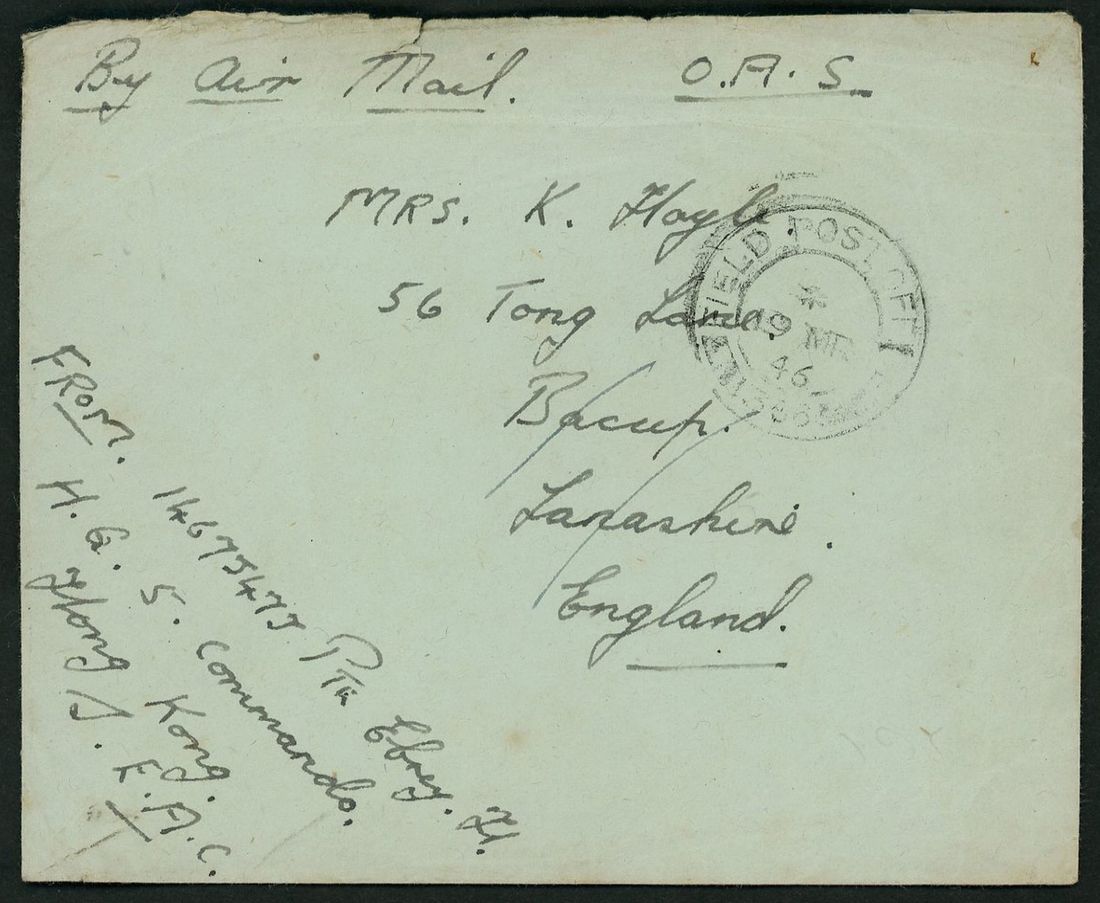 By Air Mail. O.A.S.
MRS. K. Hoyle.
56 Tong Lane.
Bacup.
Lanashire.
England.
FIELD POST OFFI
*
19 MR
46
FROM. 14675477 Pte Ebrey. H.
H.Q. 5. Commando.
Hong Kong.
S.E.A.C.